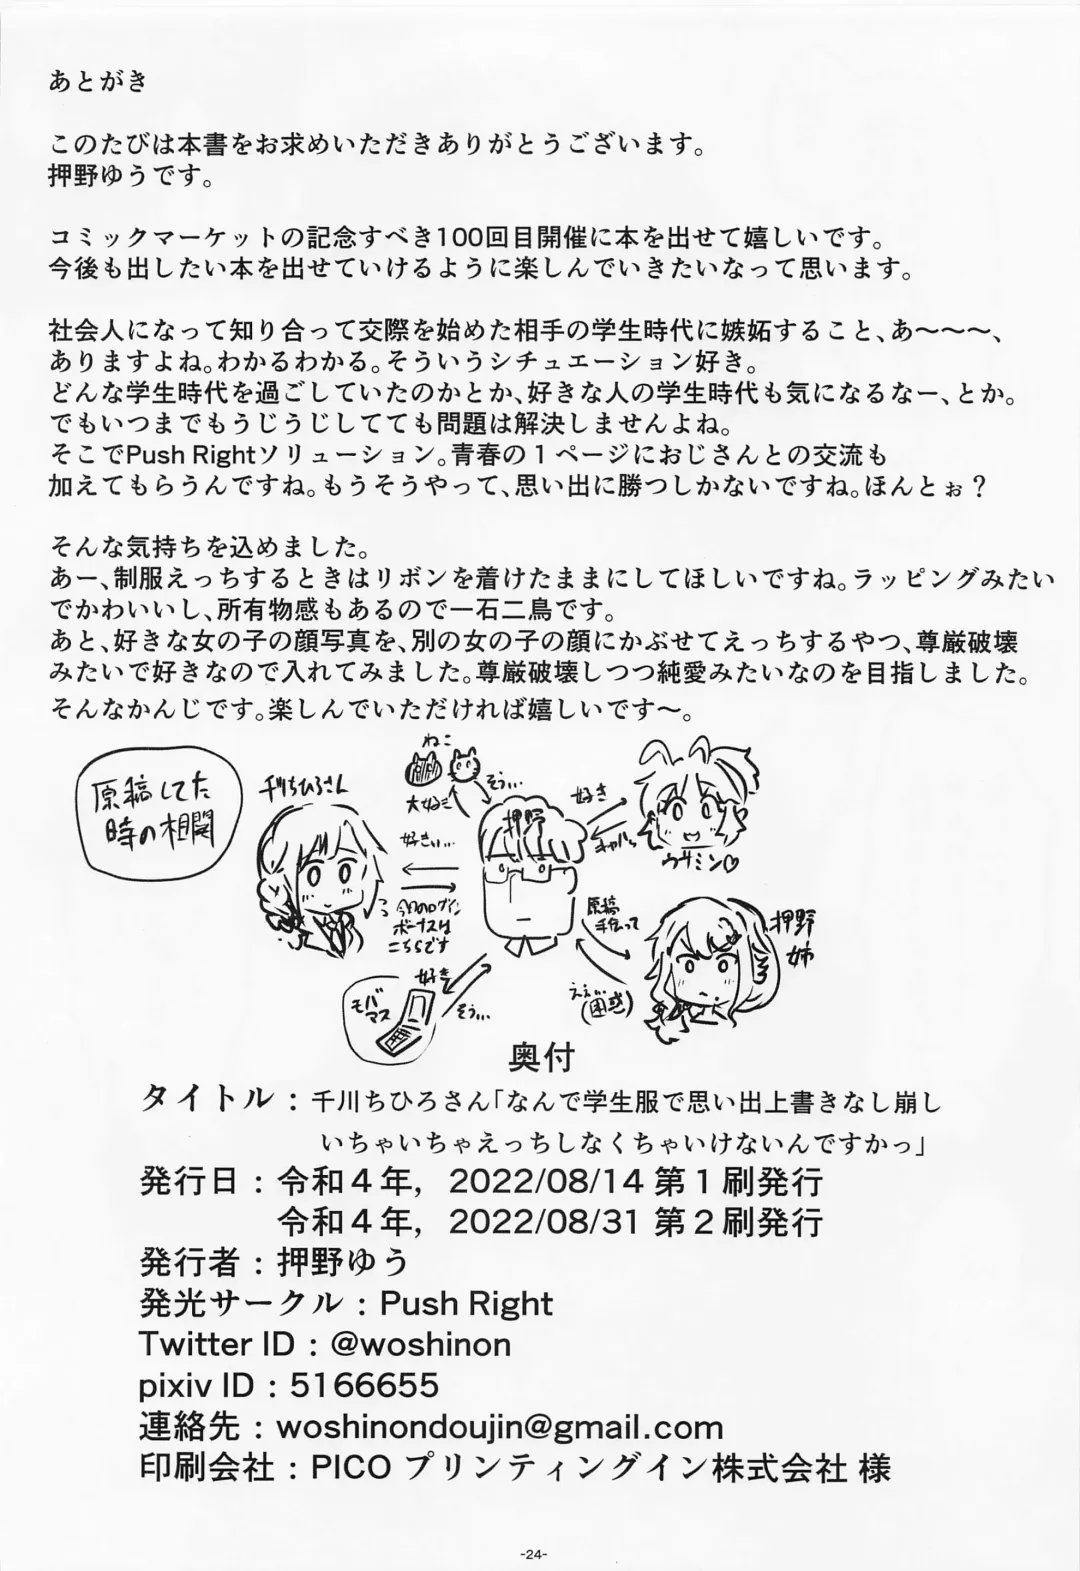 あとがき
このたびは本書をお求めいただきありがとうございます。
押野ゆうです。
コミックマーケットの記念すべき100回目開催に本を出せて嬉しいです。
今後も出したい本を出せていけるように楽しんでいきたいなって思います。
社会人になって知り合って交際を始めた相手の学生時代に嫉妬すること、あ〜〜〜、
ありますよね。わかるわかる。そういうシチュエーション好き。
どんな学生時代を過ごしていたのかとか、好きな人の学生時代も気になるなー、とか。
でもいつまでもうじうじしてても問題は解決しませんよね。
そこでPush Rightソリューション。青春の１ページにおじさんとの交流も
加えてもらうんですね。もうそうやって、思い出に勝つしかないですね。ほんとぉ？
そんな気持ちを込めました。
あー、制服えっちするときはリボンを着けたままにしてほしいですね。ラッピングみたい
でかわいいし、所有物感もあるので一石二鳥です。
あと、好きな女の子の顔写真を、別の女の子の顔にかぶせてえっちするやつ、尊厳破壊
みたいで好きなので入れてみました。尊厳破壊しつつ純愛みたいなのを目指しました。
そんなかんじです。楽しんでいただければ嬉しいです〜。
原稿してた
時の相関
千川ちひろさん
ねこ
大好き
そう…
押野
好き
キャハっ
ウサミン♡
好きぃ…
今日のログイン
ボーナスは
こちらです
原稿
手伝って
ええ…
(困惑)
押野
姉
モバ
マス
好き
そう…
奥付
タイトル：千川ちひろさん「なんで学生服で思い出上書きなし崩し
いちゃいちゃえっちしなくちゃいけないんですかっ」
発行日：令和４年，2022/08/14 第１刷発行
令和４年，2022/08/31 第２刷発行
発行者：押野ゆう
発光サークル：Push Right
Twitter ID：@woshinon
pixiv ID：5166655
連絡先：woshinondoujin@gmail.com
印刷会社：PICO プリンティングイン株式会社 様
-24-